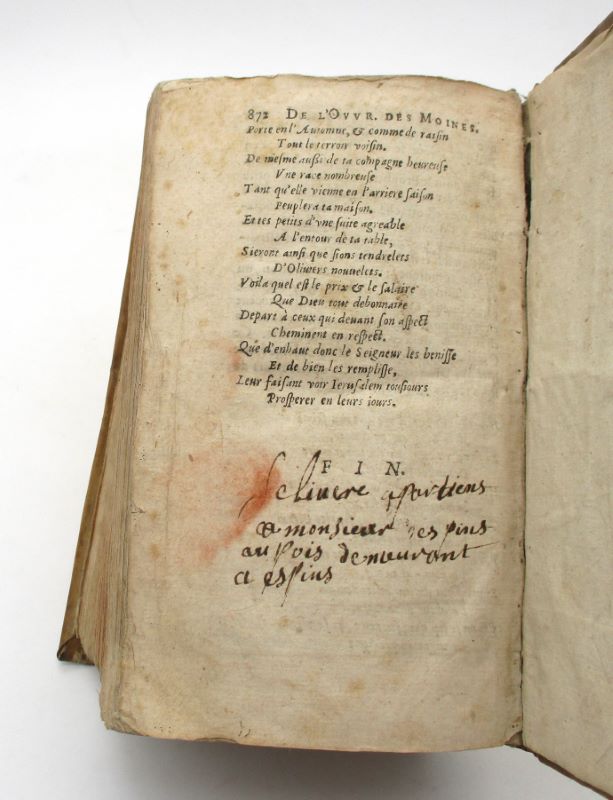 872 DE L'OVVR. DES MOINES.
Porte en l'Automne, & comme de raisin
Tout le terroir voisin.
De mesme aussi de ta compagne heureuse
Vne race nombreuse
Tant qu'elle vienne en l'arriere saison
Peuplera ta maison.
Et tes petits d'vne suite agreable
A l'entour de ta table,
Sieront ainsi que sions tendrelets
D'Oliuiers nouuelets.
Voila quel est le prix & le salaire
Que Dieu tout debonnaire
Depart à ceux qui deuant son aspect
Cheminent en respect.
Que d'enhaut donc le Seigneur les benisse
Et de bien les remplisse,
Leur faisant voir Ierusalem tousiours
Prosperer en leurs iours.
FIN.
se livere apartiens
a monsieur des pins
au demeurant
a espins